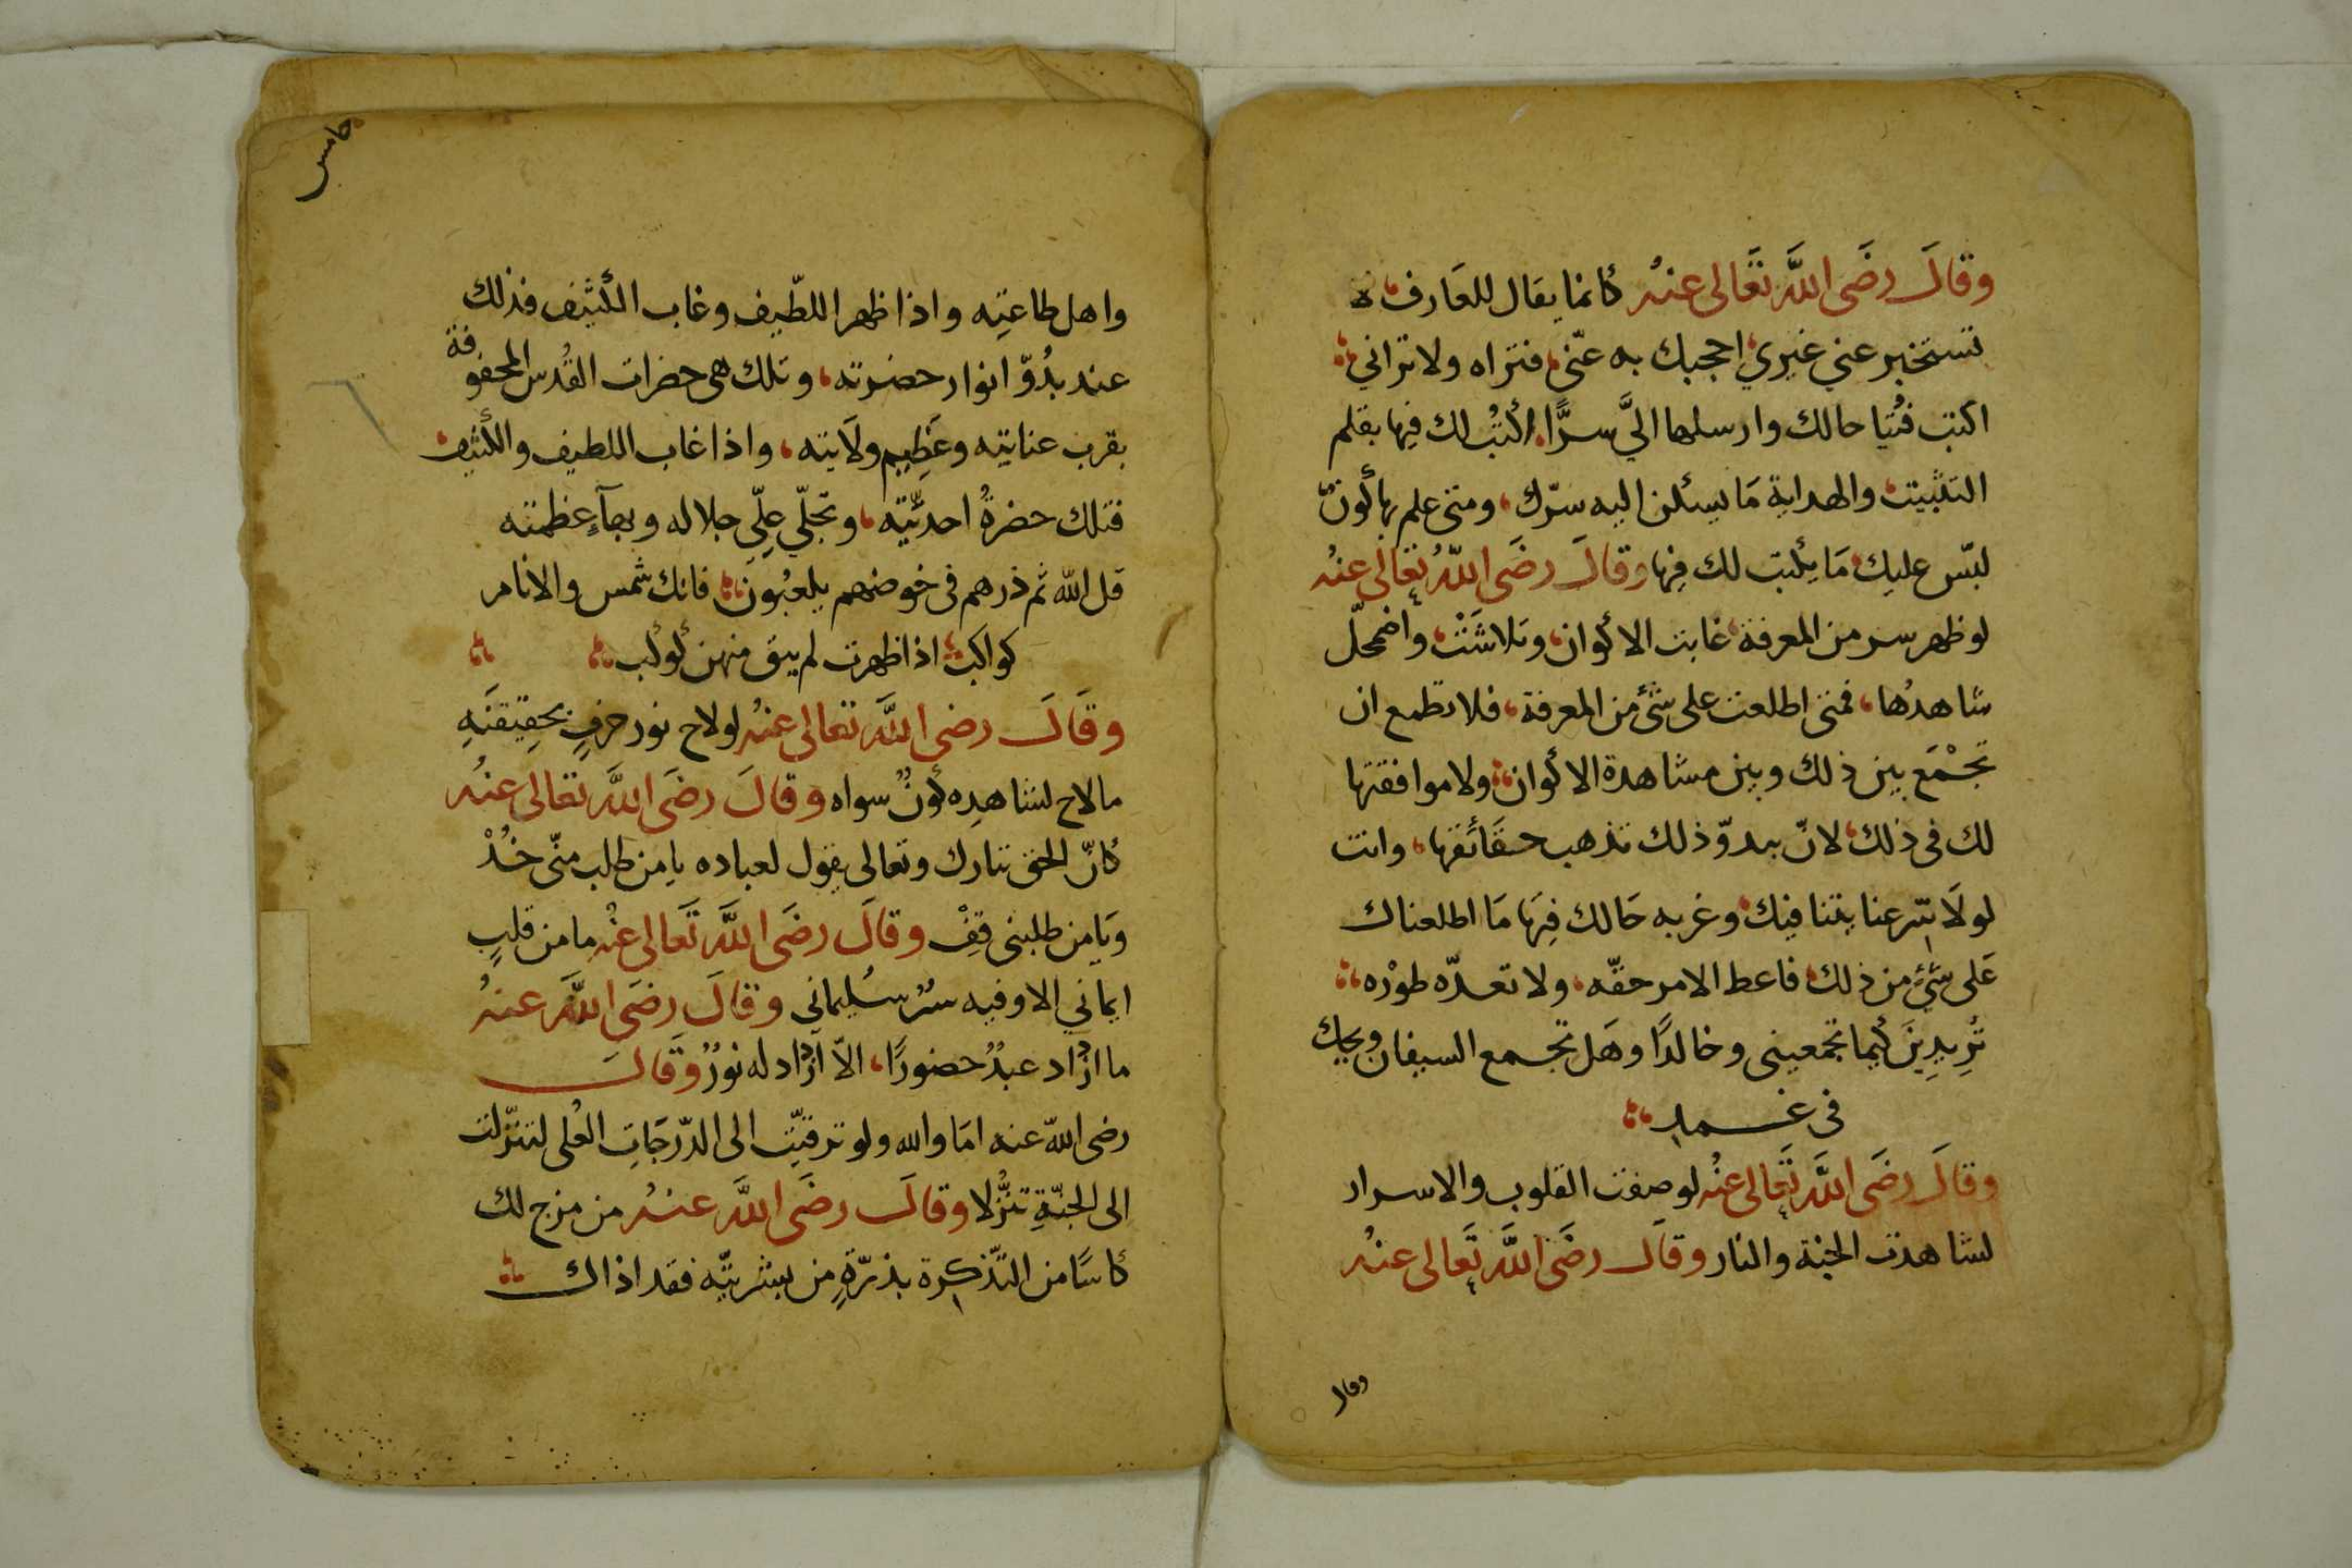 وقالَ رضَى اللَّه تعَالى عنهُ كانما يقال للعَارف لا
تستخبر عني غيري احجبك به عنّي فتراه ولا تراني
اكتب فُتيا حالك وارسلها اليَّ سرًّا اكتُب لك فيها بقلم
التثبيت والهداية مَا يسكن اليه سرّك، ومتى علم بها كونٌ
لبّس عليك مَا يكتب لك فيها وقالَ رضَى اللهُ تعالى عنهُ
لو ظهر سر من المعرفة غابت الاكوان وتلاشَتْ، واضمحلّ
شاهدُها، فمتى اطلعت على شئ من المعرفة، فلا تطمع ان
تجْمَع بين ذلك وبين مشاهدة الاكوان، ولا موافقتها
لك فى ذلك، لانّ ببدوّ ذلك تذهب حقَائقها، وانت
لولَا سر عنايتنا فيك، وغربه حَالك فيهَا مَا اطلعناك
عَلى شئ من ذلك فاعط الامر حقّه، ولا تعدّه طورْه
تُريدِينَ كيما تجمعينى وخالدًا وهَل تجمع السيفان ويحك
فى غمد
وقالَ رضَى اللَّه تعَالى عنهُ لو صفت القلوب والاسرار
لشاهدت الجنة والنار وقالَ رضَى اللَّه تعَالى عنهُ
وقال
خامس
واهل طاعتِه واذا ظهر اللطّيف وغاب الكثيف فذلك
عند بدُوّ انوار حضرته، وتلك هى حضرات القُدس المحفوفة
بقرب عنايته وعَظِيم ولَايته، واذا غاب اللطيف والكثيف
فتلك حضرةُ احديّته، وتجلّي علِيّ جلاله وبهآءِ عظمته
قل الله ثم ذرهم فى خوضهم يلعبُون فانك شمس والانام
كواكب اذا ظهرت لم يبق منهن كوكب
وقَالَ رضى اللَّه تعالى عنهُ لولاح نور حرفٍ بحقِيقتَهِ
مالاح لشاهدِه كونٌ سواه وقالَ رضَى اللَّه تعَالى عنهُ
كانّ الحق تبارك وتعالى يقول لعباده يا من طلب منّى خُذْ
ويَا من طلبنى قِفْ وقالَ رضَى اللَّه تعَالى عنْه ما من قلبٍ
ايماني الا وفيه سرٌ سُليماني وقالَ رضَى اللَّه عنهُ
ما ازدَاد عبدٌ حضورًا، الاّ ازدَاد له نورٌ وقَالَ
رضى الله عنه امَا والله ولو ترقيّت الى الدّرجَاتِ العُلى لتنزّلت
الى الجنّةِ تنزُّلا وقالَ رضَى اللَّه عنهُ من مزج لك
كاسًا من التّذكرة بذرّةٍ من بشريّته فقد اذاك